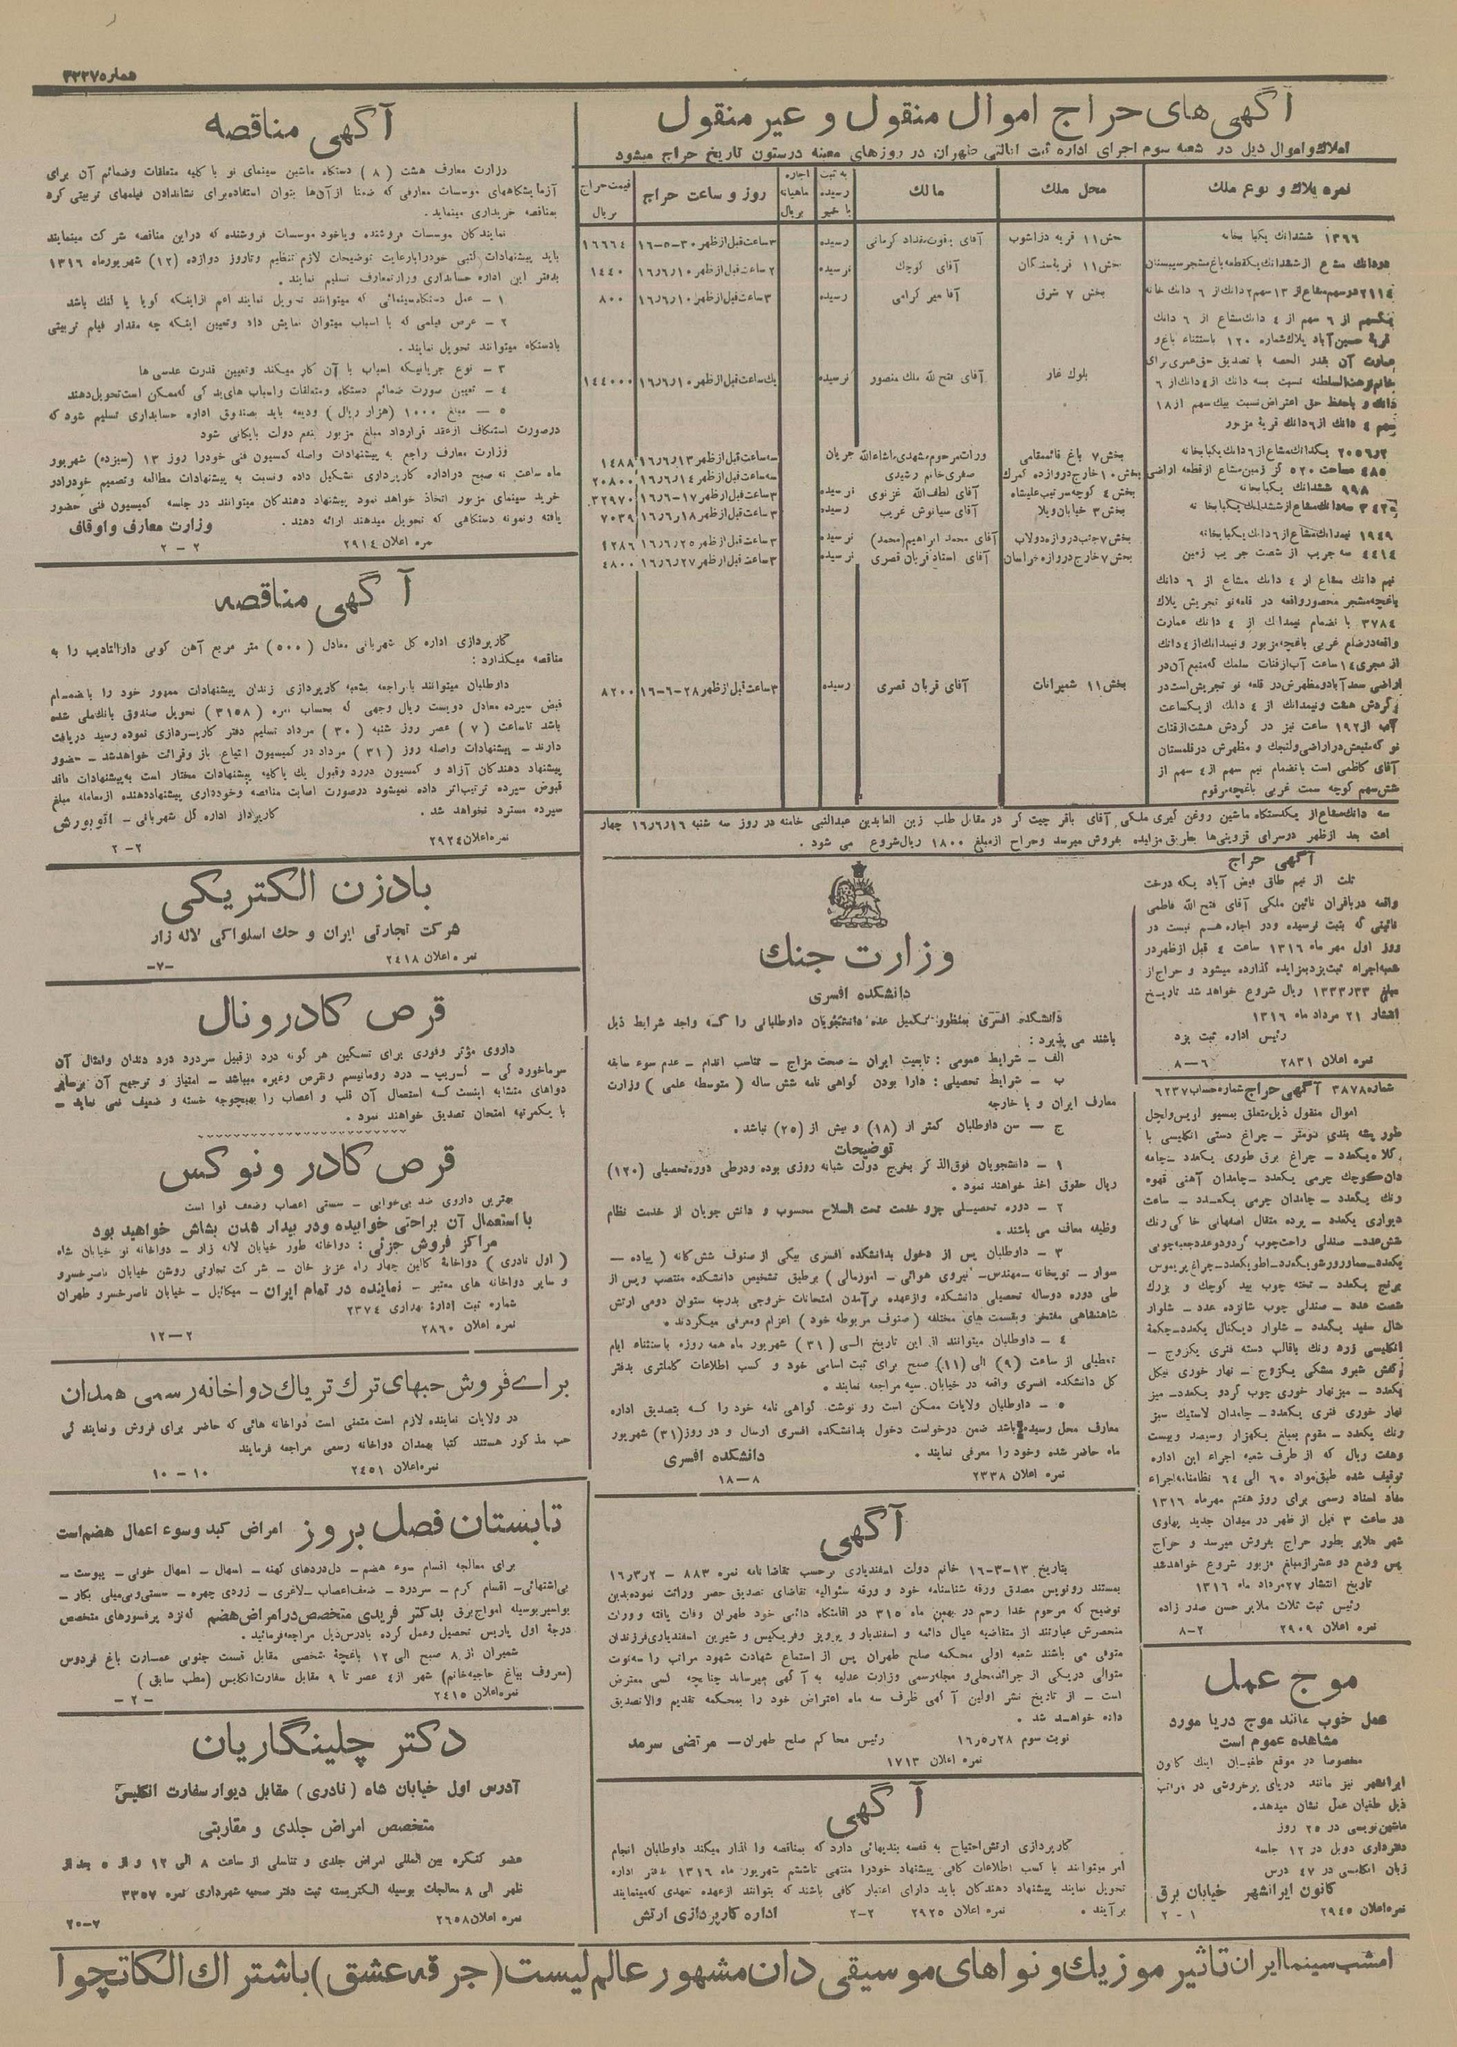 شماره ۳۲۲۷
آگهی های حراج اموال منقول و غیر منقول
املاک و اموال ذیل در شعبه سوم اجرای اداره ثبت ایالتی طهران در روزهای معینه درستون تاریخ حراج میشود
نمره پلاک و نوع ملک
محل ملک
مالک
به ثبت رسیده یا خیر
اجاره ماهیانه بریال
روز و ساعت حراج
قیمت حراج بریال
۱۳۶۶ ششدانك یکبابخانه
بخش ۱۱ قریه دزاشوب
رسیده
۳ساعت قبل از ظهر ۳۰-۵-۱۶
۱۶۶۶۴
آقای کوچك
نرسیده
۲ساعت قبل از ظهر ۱۶/۶/۱۰
۱۴۴۰
بخش ۷ شرق
آقا میر کرامی
رسیده
۳ساعت قبل از ظهر ۱۶/۶/۱۰
۸۰۰
یکسهم از ۶ سهم از ٤ دانك مشاع از ۶ دانك
قریه حسین آباد پلاك شماره ۱۲۰ باستثناء باغ و
عمارت آن بقدر الحصه با تصدیق حق عمری برای
بلوك غار
آقای فتح الله ملك منصور
نرسیده
یكساعت قبل از ظهر ۱۶/۶/۱۰
۱۴۴۰۰۰
سهم ٤ دانك از ۶ دانك قریه مزبور
بخش ۷ باغ قائممقامی
جریان
سه ساعت قبل از ظهر ۱۶/۶/۱۳
۱٤۸۸
بخش ۱۰ خارج دروازه گمرك
صغری خانم رشیدی
سه ساعت قبل از ظهر ۱۶/۶/۱٤
۲۰۸۰۰
۹۹۸ ششدانك یکبابخانه
آقای لطف الله غزنوی
نرسیده
۳ساعت قبل از ظهر ۱۷-۶-۱۶
۳۲۹۷۰
بخش ۳ خیابان ویلا
آقای سیانوش غریب
رسیده
۳ساعت قبل از ظهر ۱۶/۶/۱۸
۷۰۳۹
۱۹٤۹ نیمدانك مشاع از ۶ دانك یکبابخانه
بخش ۷ جنب دروازه دولاب
آقای محمد ابراهیم (محمد)
نرسیده
۳ساعت قبل از ظهر ۱۶/۶/۲۵
٤۲۸۶
٤٤۱٤ سه جریب از شصت جریب زمین
بخش ۷ خارج دروازه خراسان
آقای استاد قربان قصری
نرسیده
۳ساعت قبل از ظهر ۱۶/۶/۲۷
٤۸۰۰
نیم دانك مشاع از ٤ دانك مشاع از ۶ دانك
باغچه مشجر محصور واقعه در قلعه نو تجریش پلاك
۳۷۸٤ با نضمام نیمدانك از ٤ دانك عمارت
واقعه در ضلع غربی باغچه مزبور و نیمدانك از ٤ دانك
از مجری ۱٤ ساعت آب از قنات سلمك که منبع آن در
اراضی سعدآباد و مظهرش در قلعه نو تجریش است در
بخش ۱۱ شمیرانات
آقای قربان قصری
رسیده
۳ساعت قبل از ظهر ۲۸-۶-۱۶
۸۲۰۰
گردش هشت و نیمدانك از ٤ دانك از یکساعت
آب از ۱۹۲ ساعت نیز در گردش هشت از قنات
نو که منبعش در اراضی ولنجك و مظهرش در قلمستان
آقای کاظمی است بانضمام نیم سهم از ٤ سهم از
شش سهم کوچه سمت غربی باغچه مرقوم
سه دانك مشاع از یکدستگاه ماشین روغن گیری ملکی آقای باقر چیت گر در مقابل طلب زین العابدین عبدالنبی خامنه در روز سه شنبه ۱۶/۶/۱۶ چهار
ساعت بعد از ظهر در سرای قزوینی ها بطریق مزایده بفروش میرسد وحراج از مبلغ ۱۸۰۰ ریال شروع می شود .
آگهی حراج
ثلث از نیم طاق فیض آباد یکه درخت
واقعه در بافران نائین ملکی آقای فتح الله فاطمی
نائینی که بثبت نرسیده ودر اجاره هم نیست در
روز اول مهر ماه ۱۳۱۶ ساعت ٤ قبل از ظهر در
شعبه اجراء ثبت یزد بمزایده گذارده میشود و حراج از
مبلغ ۱۳۳۳/۳۳ ریال شروع خواهد شد تاریخ
انتشار ۲۱ مرداد ماه ۱۳۱۶
رئیس اداره ثبت یزد
نمره اعلان ۲۸۳۱ ۶-۸
شماره ۳۸۷۸ آگهی حراج شماره حساب ۶۲۳۷
طور پشه بندی دومتر - چراغ دستی انگلیسی با
کلاه یکعدد - چراغ برق طوری یکعدد - جامه
دان کوچك چرمی یکعدد - چامدان آهنی قهوه
رنك یکعدد - چامدان چرمی یکعدد - ساعت
دیواری یکعدد - پرده متقال اصفهانی خاکی رنك
شش عدد - صندلی راحت چوب گردو دو عدد جعبه چوبی
برنج یکعدد - تخته چوب بید کوچك و بزرگ
شصت عدد - صندلی چوب شانزده عدد - شلوار
شال سفید یکعدد - شلوار دیگنال یکعدد - چکمه
انگلیسی زرد رنك باقالب دسته فنری یکزوج -
کفش شبرو مشکی یکزوج - نهار خوری نیکل
یکعدد - میز نهار خوری چوب گردو یکعدد - میز
نهار خوری فنری یکعدد - چامدان لاستیك سبز
رنك یکعدد - مقوم بمبلغ یکهزار و سیصد و بیست
وهفت ریال که از طرف شعبه اجراء این اداره
توقیف شده طبق مواد ۶۰ الی ۶٤ نظامنامه اجراء
مفاد اسناد رسمی برای روز هفتم مهرماه ۱۳۱۶
در ساعت ۳ قبل از ظهر در میدان جدید پهلوی
شهر ملایر بطور حراج بفروش میرسد و حراج
پس وضع دو عشر از مبلغ مزبور شروع خواهد شد
تاریخ انتشار ۲۷ مرداد ماه ۱۳۱۶
رئیس ثبت ثلاث ملایر حسن صدر زاده
نمره اعلان ۲۹۰۹ ۲-۸
موج عمل
عمل خوب مانند موج دریا مورد
مشاهده عموم است
مخصوصا در موقع طغیان اینك کانون
ایرانشهر نیز مانند دریای پرخروشی در مراتب
ذیل طغیان عمل نشان میدهد.
ماشین نویسی در ۲۵ روز
دفترداری دوبل در ۱۲ جلسه
زبان انگلیسی در ٤۷ درس
کانون ایرانشهر خیابان برق
نمره اعلان ۲۹٤۵ ۱-۲
وزارت جنك
دانشکده افسری
دانشکده افسری بمنظور تکمیل عده دانشجویان داوطلبانی را که واجد شرایط ذیل
باشند می پذیرد :
الف - شرایط عمومی : تابعیت ایران - صحت مزاج - تناسب اندام - عدم سوء سابقه
ب - شرایط تحصیلی : دارا بودن گواهی نامه شش ساله ( متوسطه علمی ) وزارت
معارف ایران و یا خارجه
ج - سن داوطلبان کمتر از (۱۸) و بیش از (۲۵) نباشد .
توضیحات
۱ - دانشجویان فوق الذکر بخرج دولت شبانه روزی بوده ودرطی دوره تحصیلی (۱۲۰)
ریال حقوق اخذ خواهند نمود .
۲ - دوره تحصیلی جزو خدمت تحت السلاح محسوب و دانش جویان از خدمت نظام
وظیفه معاف می باشند .
۳ - داوطلبان پس از دخول بدانشکده افسری بیکی از صنوف شش گانه ( پیاده -
سوار - توپخانه - مهندس - نیروی هوائی - آموزمالی ) برطبق تشخیص دانشکده منتصب و پس از
طی دوره دوساله تحصیلی دانشکده وازعهده برآمدن امتحانات خروجی بدرجه ستوان دومی ارتش
شاهنشاهی مفتخر وبقسمت های مختلفه ( صنوف مربوطه خود ) اعزام ومعرفی میگردند .
٤ - داوطلبان میتوانند از این تاریخ الی (۳۱) شهریور ماه همه روزه باستثناء ایام
تعطیلی از ساعت (۹) الی (۱۱) صبح برای ثبت اسامی خود و کسب اطلاعات کاملتری بدفتر
کل دانشکده افسری واقعه در خیابان سپه مراجعه نمایند .
۵ - داوطلبان ولایات ممکن است رو نوشت گواهی نامه خود را که بتصدیق اداره
معارف محل رسیده باشد ضمن درخواست دخول بدانشکده افسری ارسال و در روز (۳۱) شهریور
ماه حاضر شده وخود را معرفی نمایند . دانشکده افسری
نمره اعلان ۲۳۳۸ ۸-۱۸
آگهی
بتاریخ ۱۳-۳-۱۶ خانم دولت اسفندیاری برحسب تقاضا نامه نمره ۸۸۳ - ۱۶/۳/۲
بمستند رونویس مصدق ورقه شناسنامه خود و ورقه سئوالیه تقاضای تصدیق حصر وراثت نموده بدین
توضیح که مرحوم خدا رحم در بهمن ماه ۳۱۵ در اقامتگاه دائمی خود طهران وفات یافته و وراث
منحصرش عبارتند از متقاضیه عیال دائمه و اسفندیار و پرویز وفریکیس و شیرین اسفندیاری فرزندان
متوفی می باشند شعبه اولی محکمه صلح طهران پس از استماع شهادت شهود مراتب را سه نوبت
متوالی در یکی از جرائد محلی و مجله رسمی وزارت عدلیه به آگهی میرساند چنانچه کسی معترض
است - از تاریخ نشر اولین آگهی ظرف سه ماه اعتراض خود را بمحکمه تقدیم والاتصدیق
داده خواهد شد .
نوبت سوم ۱۶/۵/۲۸ رئیس محاکم صلح طهران - مرتضی سرمد
نمره اعلان ۱۷۱۳
آگهی
کارپردازی ارتش احتیاج به قفسه بندیهائی دارد که بمناقصه واگذار میکند داوطلبان انجام
امر میتوانند با کسب اطلاعات کافی پیشنهاد خودرا منتهی تا ششم شهریور ماه ۱۳۱۶ بدفتر اداره
تحویل نمایند پیشنهاد دهندگان باید دارای اعتبار کافی باشند که بتوانند ازعهده تعهدی که مینمایند
برآیند . نمره اعلان ۲۹۲۵ ۲-۲ اداره کارپردازی ارتش
آگهی مناقصه
وزارت معارف هشت ( ۸ ) دستگاه ماشین سینمای نو با کلیه متعلقات وضمائم آن برای
آزمایشگاههای موسسات معارفی که ضمنا از آن ها بتوان استفاده برای نشاندادن فیلمهای تربیتی کرد
بمناقصه خریداری مینماید .
نمایندگان موسسات فروشنده ویاخود موسسات فروشنده که دراین مناقصه شرکت مینمایند
باید پیشنهادات کتبی خودرا بارعایت توضیحات لازم تنظیم وتاروز دوازده (۱۲) شهریورماه ۱۳۱۶
بدفتر این اداره حسابداری وزارتمعارف تسلیم نمایند .
۱ - عمل دستگاه سینمائی که میتوانند تحویل نمایند اعم ازاینکه گویا یا گنك باشد
۲ - عرض فیلمی که با اسباب میتوان نمایش داد وتعیین اینکه چه مقدار فیلم تربیتی
بادستگاه میتوانند تحویل نمایند .
۳ - نوع جریانیکه اسباب با آن کار میکند وتعیین قدرت عدسی ها
٤ - تعیین صورت ضمائم دستگاه ومتعلقات واسباب های یدکی که ممکن است تحویل دهند
۵ - مبلغ ۱۰۰۰ (هزار ریال) ودیعه باید بصندوق اداره حسابداری تسلیم شود که
درصورت استنکاف ازعقد قرارداد مبلغ مزبور بنفع دولت بایگانی شود
وزارت معارف راجع به پیشنهادات واصله کمیسیون فنی خودرا روز ۱۳ (سیزده) شهریور
ماه ساعت نه صبح دراداره کارپردازی تشکیل داده ونسبت به پیشنهادات مطالعه وتصمیم خودرادر
خرید سینمای مزبور اتخاذ خواهد نمود پیشنهاد دهندگان میتوانند در جلسه کمیسیون فنی حضور
یافته ونمونه دستگاهی که تحویل میدهند ارائه دهند . وزارت معارف واوقاف
نمره اعلان ۲۹۱٤ ۲-۲
آگهی مناقصه
کارپردازی اداره کل شهربانی معادل (۵۰۰) متر مربع آهن کوبی دارالتادیب را به
مناقصه میگذارد :
داوطلبان میتوانند بامراجعه بشعبه کارپردازی زندان پیشنهادات ممهور خود را بانضمام
قبض سپرده معادل دویست ریال وجهی که بحساب نمره (۳۱۵۸) تحویل صندوق بانك ملی شده
باشد تاساعت (۷) عصر روز شنبه (۳۰) مرداد تسلیم دفتر کارپردازی نموده رسید دریافت
دارند - پیشنهادات واصله روز (۳۱) مرداد در کمیسیون ابتیاع باز وقرائت خواهدشد - حضور
پیشنهاد دهندگان آزاد و کمیسیون دررد وقبول یك یا کلیه پیشنهادات مختار است به پیشنهادات فاقد
قبوض سپرده ترتیب اثر داده نمیشود درصورت اصابت مناقصه وخودداری پیشنهاددهنده ازمعامله مبلغ
سپرده مسترد نخواهد شد . کارپرداز اداره کل شهربانی - آتوبورش
نمره اعلان ۲۹۲٤ ۲-۲
بادزن الکتریکی
شرکت تجارتی ایران و چك اسلواکی لاله زار
نمره اعلان ۲٤۱۸ -۷-
قرص کادرونال
داروی مؤثر وفوری برای تسکین هر گونه درد ازقبیل سردرد درد دندان وامثال آن
سرماخوردگی - گریپ - درد روماتیسم ونقرص وغیره میباشد - امتیاز و ترجیح آن برسایر
دواهای متشابه اینست که استعمال آن قلب و اعصاب را بهیچوجه خسته و ضعیف نمی نماید -
با یکمرتبه امتحان تصدیق خواهند نمود .
قرص کادرونوکس
بهترین داروی ضد بی خوابی - سستی اعصاب وضعف قوا است
با استعمال آن براحتی خوابیده ودر بیدار شدن بشاش خواهید بود
مراکز فروش جزئی : دواخانه طور خیابان لاله زار - دواخانه نو خیابان شاه
(اول نادری) دواخانه کالین چهار راه عزیز خان - شرکت تجارتی روشن خیابان ناصرخسرو
و سایر دواخانه های معتبر - نماینده در تمام ایران - میکائیل - خیابان ناصرخسرو طهران
شماره ثبت اداره بهداری ۲۳۷٤
نمره اعلان ۲۸۶۰ ۲-۱۲
برای فروش حبهای ترك تریاك دواخانه رسمی همدان
در ولایات نماینده لازم است متمنی است دواخانه هائی که حاضر برای فروش ونمایندگی
حب مذکور هستند کتبا بهمدان دواخانه رسمی مراجعه فرمایند
نمره اعلان ۲٤۵۱ ۱۰-۱۰
تابستان فصل بروز امراض کبد وسوء اعمال هضم است
برای معالجه اقسام سوء هضم - دل دردهای کهنه - اسهال - اسهال خونی - یبوست -
بی اشتهائی - اقسام کرم - سردرد - ضعف اعصاب - لاغری - زردی چهره - سستی وبی میلی بکار -
بواسیر بوسیله امواج برق بدکتر فریدی متخصص در امراض هضم که نزد پرفسورهای متخصص
درجه اول پاریس تحصیل وعمل کرده بآدرس ذیل مراجعه فرمائید .
شمیران از ۸ صبح الی ۱۲ باغچه شخصی مقابل قسمت جنوبی عمارت باغ فردوس
(معروف بباغ حاجیه خانم) شهر از ٤ عصر تا ۹ مقابل سفارت انگلیس (مطب سابق)
نمره اعلان ۲٤۱۵ -۲-
دکتر چلینگاریان
آدرس اول خیابان شاه (نادری) مقابل دیوار سفارت انگلیس
متخصص امراض جلدی و مقاربتی
عضو کنگره بین المللی امراض جلدی و تناسلی از ساعت ۸ الی ۱۲ و از ۵ بعد از
ظهر الی ۸ معالجات بوسیله الکتریسته ثبت دفتر صحیه شهرداری نمره ۳۳۵۷
نمره اعلان ۲۶۵۸ ۷-۲۰
امشب سینما ایران تاثیر موزیك و نواهای موسیقی دان مشهور عالم لیست (جرقه عشق) باشتراك الکاتچوا